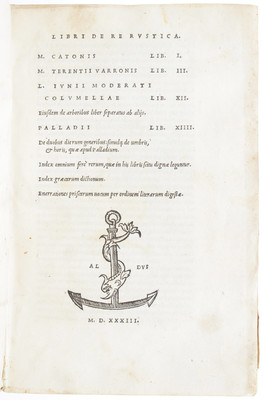 LIBRI DE RE RVSTICA.
M. CATONIS LIB. I.
M. TERENTII VARRONIS LIB. III.
L. IVNII MODERATI
COLVMELLAE LIB. XII.
Eiusdem de arboribus liber separatus ab alijs.
PALLADII LIB. XIIII.
De duobus dierum generibus: simulq; de umbris,
& horis, quæ apud Palladium.
Index omnium ferè rerum, quæ in his libris scitu dignæ leguntur.
Index græcarum dictionum.
Enarrationes priscarum uocum per ordinem literarum digestæ.
AL DVS
M. D. XXXIII.